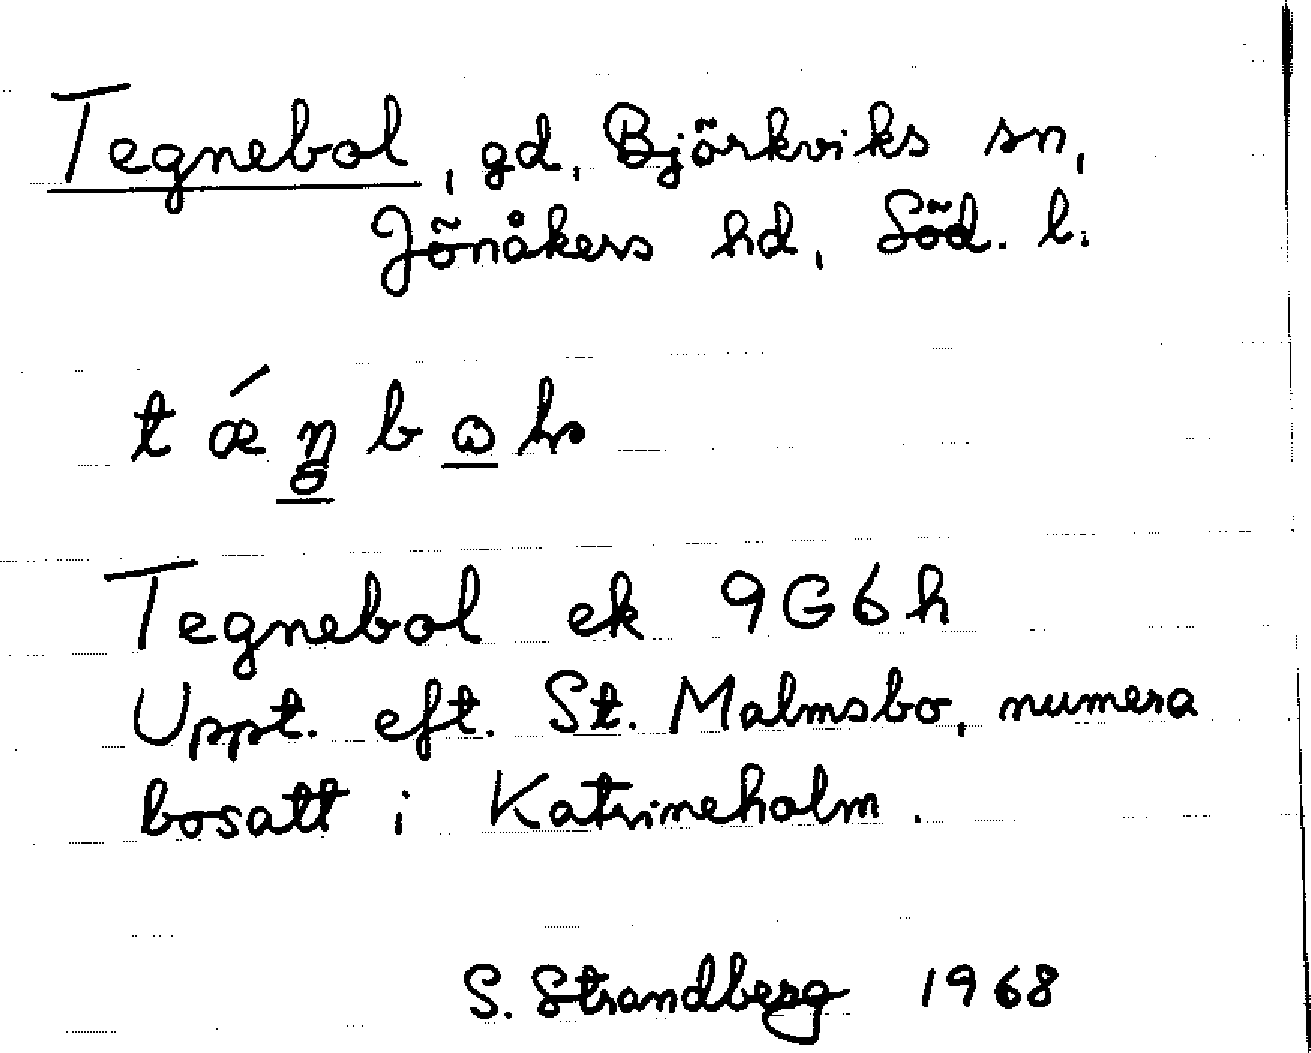 Tegnebol, gd, Björkviks sn,
Jönåkers hd, Söd. l.
Tegnebol ek 9G6h
Uppt. eft. St. Malmsbo, numera
bosatt i Katrineholm.
S. Strandberg 1968